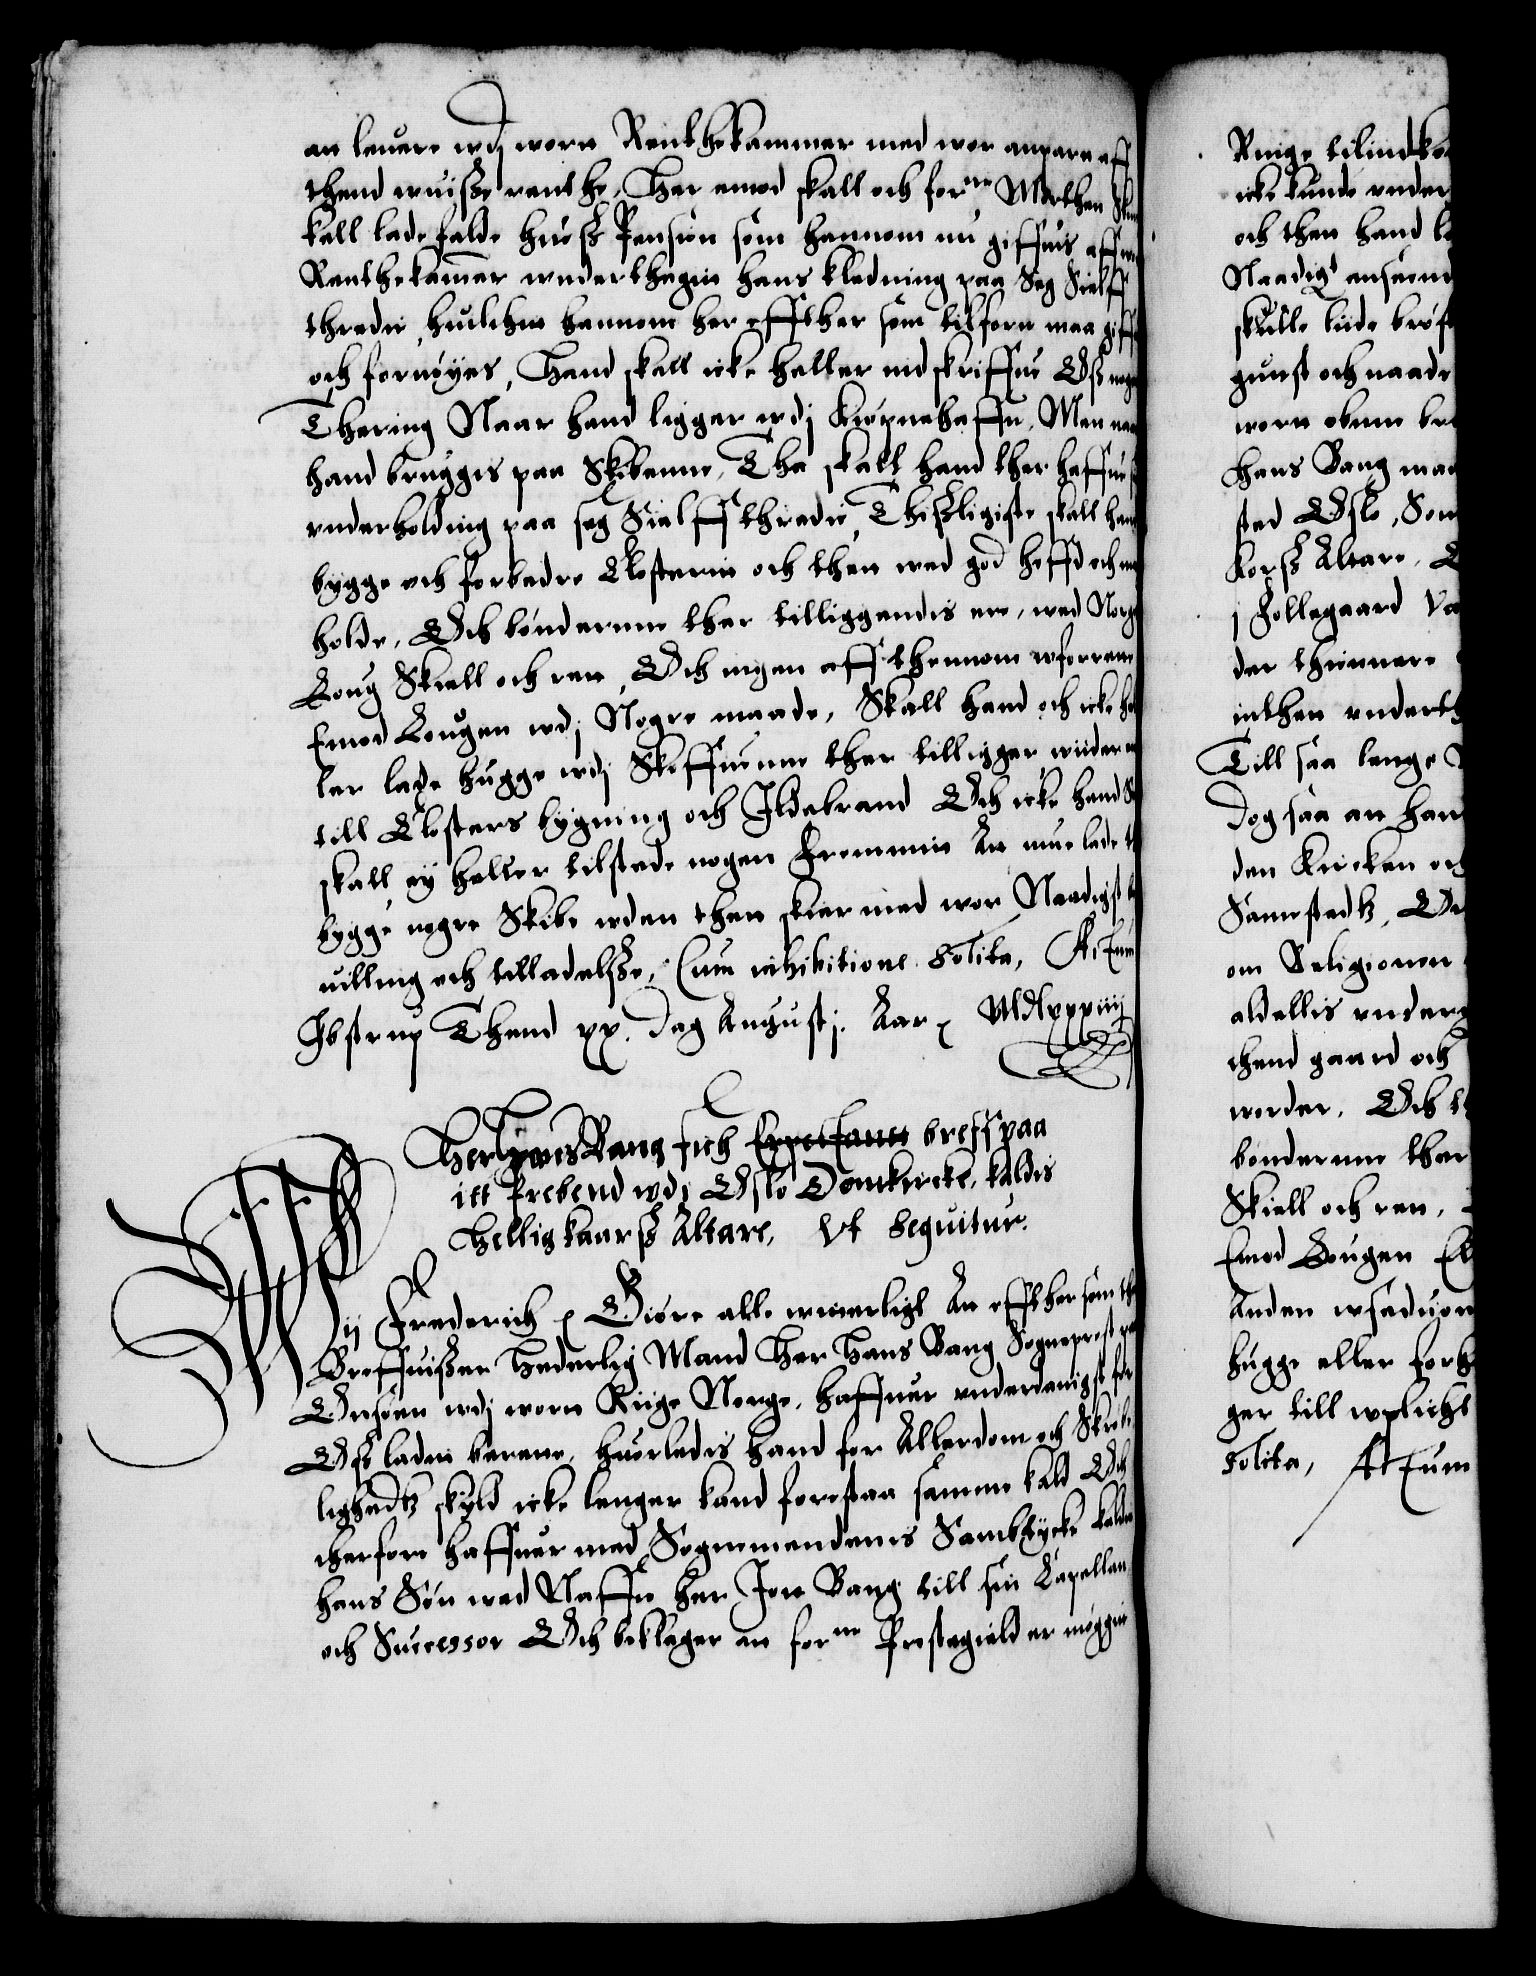 an leuere wdj worn Renthekammer med wor anpara aff
thend wuisse renthe, Her emod skall och for:ne Morthen
kall lade falde huess Pension som hannom nu giffuis aff
Renthekamer wnderthagen hans kledning paa Seg Sielff
thredie, huilchen hannom her effther som tilforn maa giff
och fornøyes, Hand skall icke heller indskriffue Oss noge
Thering Naar hand ligger wdj Kiøpnehaffn, Men naar
hand bruggis paa Skibenne, Tha skall hand ther haffue
vnderholding paa seg Sielff thredie, Thisligiste skall hand
bygge och forbedre Closteren och then wed god heffd och
holde, Och bønderne ther tilliggendis ere, wed Norge
Loug Skiell och ren, Och ingen aff thennom wforrene
Emod Lougen wdj Nogre maade, Skall hand och icke hel
ler lade hugge wdj Skoffuenne ther tilligger, widere en
till Closters bygning och Ildebrand Och icke hand
skall ey heller tilstede nogen Fremmen An mue lade
bygge nogre Skibe vden then skier med wor Naadigst be
uilling och tilladelsse, Cum inhibitione solita, Actum
Ibstrup Thend xx. Dag Augustj. Aar &c MDlxxxiiij
Her Hans Bang fick Expectants breff paa
itt Prebend wdj Oslo Domkircke, kaldis
Hellig kaarss Altare, Vt sequitur.
Wij Frederich &c Giøre alle witterligt An effthersom the
Breffuisser Hederlig Mand Her Hans Bang Sogneprest paa
Onsøen wdj worn Riige Norge, haffuer vnderdanigst for
Oss laden berette, huorledis hand for Allerdom och Skrøbe
lighedtz skyld icke lenger kand forestaa samme kald Och
therfore haffuer med Sognemendenis Sambtycke kaldet
hans Søn wed Naffn her Jon Bang till sin Capellan
och Successor Och beklager an for:ne Prestegield er møggen
Ringe tilind
icke kunde vnder
och then hand
Naadigt anseend
skulle liide
gunst och naade
worn obenne bre
Hans Bang maa
sted Oslo, Som
Korss Altare,
j Follegaard
der thienere
inthen vnderth
Till saa lenge
Dog saa an han
den Kircken och
Sammestedtz,
om Religionen
aldellis vnderg
thend gaard och
worder. Och
bønderne ther
Skiell och ren,
Emod Lougen
Anden wseduon
hugge eller forh
ger till wplicht
solita, Actum